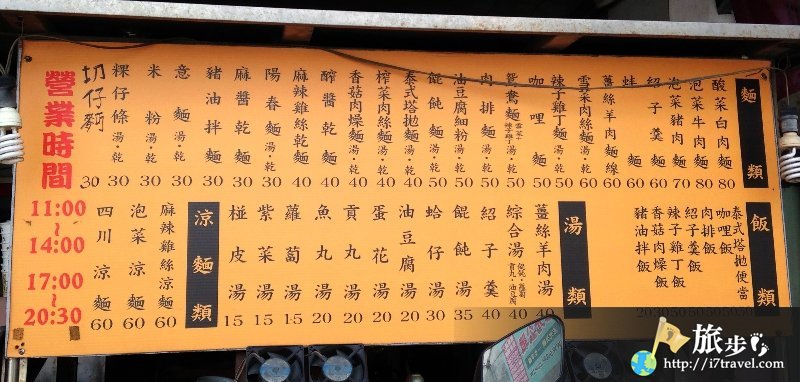 麵類
酸菜白肉麵 80
泡菜牛肉麵 80
泡菜豬肉麵 70
紹子羹麵 60
蛙麵 60
薑絲羊肉麵線 60
雪菜肉絲麵 湯·乾 60
辣子雞丁麵 湯·乾 50
咖哩麵 50
鴛鴦麵
50
肉排麵 湯·乾 50
油豆腐細粉 湯·乾 50
餛飩麵 湯·乾 50
泰式塔拋麵 湯·乾 40
榨菜肉絲麵 湯·乾 40
香菇肉燥麵 湯·乾 40
醡醬乾麵 40
麻辣雞絲乾麵 40
陽春麵 湯·乾 30
麻醬乾麵 30
豬油拌麵 30
意麵 湯·乾 30
米粉 湯·乾 30
粿仔條 湯·乾 30
切仔麵 30
營業時間
11:00
~
14:00
17:00
~
20:30
飯類
泰式塔拋便當
咖哩飯
肉排飯
紹子羹飯
辣子雞丁飯
香菇肉燥飯
豬油拌飯
湯類
薑絲羊肉湯 40
綜合湯
40
紹子羹 40
餛飩湯 35
蛤仔湯 30
油豆腐湯 20
蛋花湯 20
貢丸湯 20
魚丸湯 20
蘿蔔湯 15
紫菜湯 15
椪皮湯 15
涼麵類
麻辣雞絲涼麵 60
泡菜涼麵 60
四川涼麵 60
旅步
http://i7travel.com